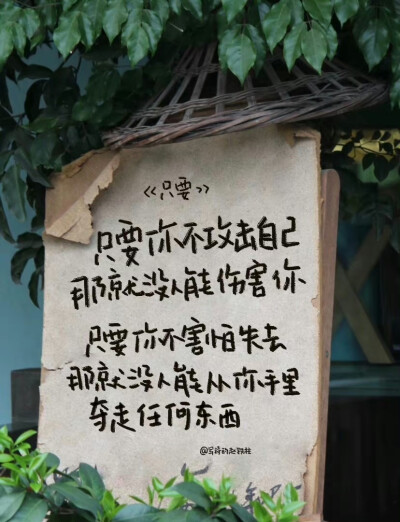 《只要》
只要你不攻击自己
那就没人能伤害你
只要你不害怕失去
那就没人能从你手里
夺走任何东西
@写诗的赵铁柱